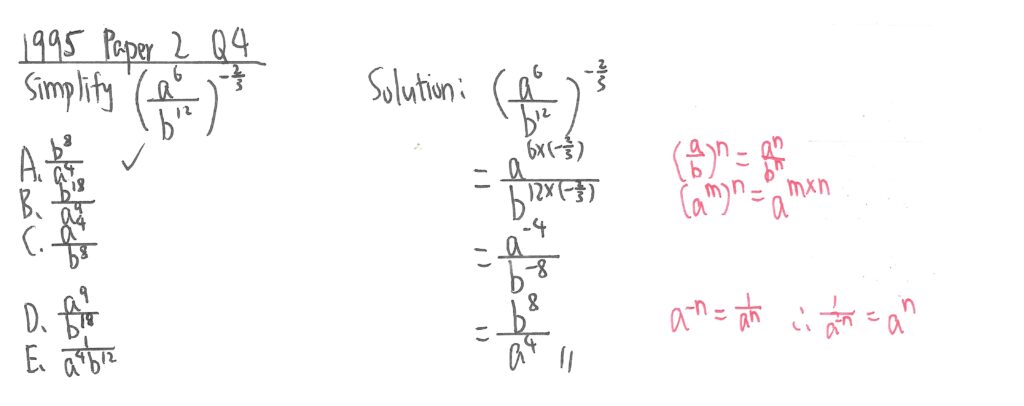 1995 Paper 2 Q4
Simplify (a^6/b^12)^(-2/3)
A. b^8/a^4 ✓
B. b^18/a^9
C. a^4/b^8
D. a^9/b^18
E. 1/(a^4 b^12)
Solution: (a^6/b^12)^(-2/3)
= a^(6×(-2/3))/b^(12×(-2/3))
= a^-4/b^-8
= b^8/a^4 //
(a/b)^n = a^n/b^n
(a^m)^n = a^(m×n)
a^-n = 1/a^n ∴ 1/a^-n = a^n